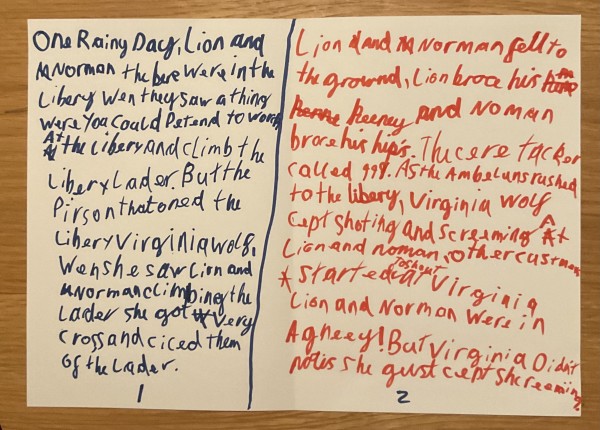 One Rainy Dacy, Lion and
Norman the bere were in the
Libery Wen they saw a thing
were you could Petend to Work
At the Libery and climb the
Libery Lader. But the
Pirson that oned the
Libery Virginia wolf,
Wen she saw Lion and
Norman climbing the
Lader she got Very
cross and ciced them
of the Lader.
1
Lion and Norman fell to
the grownd, Lion broce his
Keeney and Noman
brore his hips. The cere tacker
called 999. As the Ambeluns rushed
to the libery, Virginia Wolf
cept shoting and screaming At
Lion and noman, other custmers
started to shout at Virginia
Lion and Norman were in
Agheey! But Virginia Didn't
notis she gust cept shcreaming
2